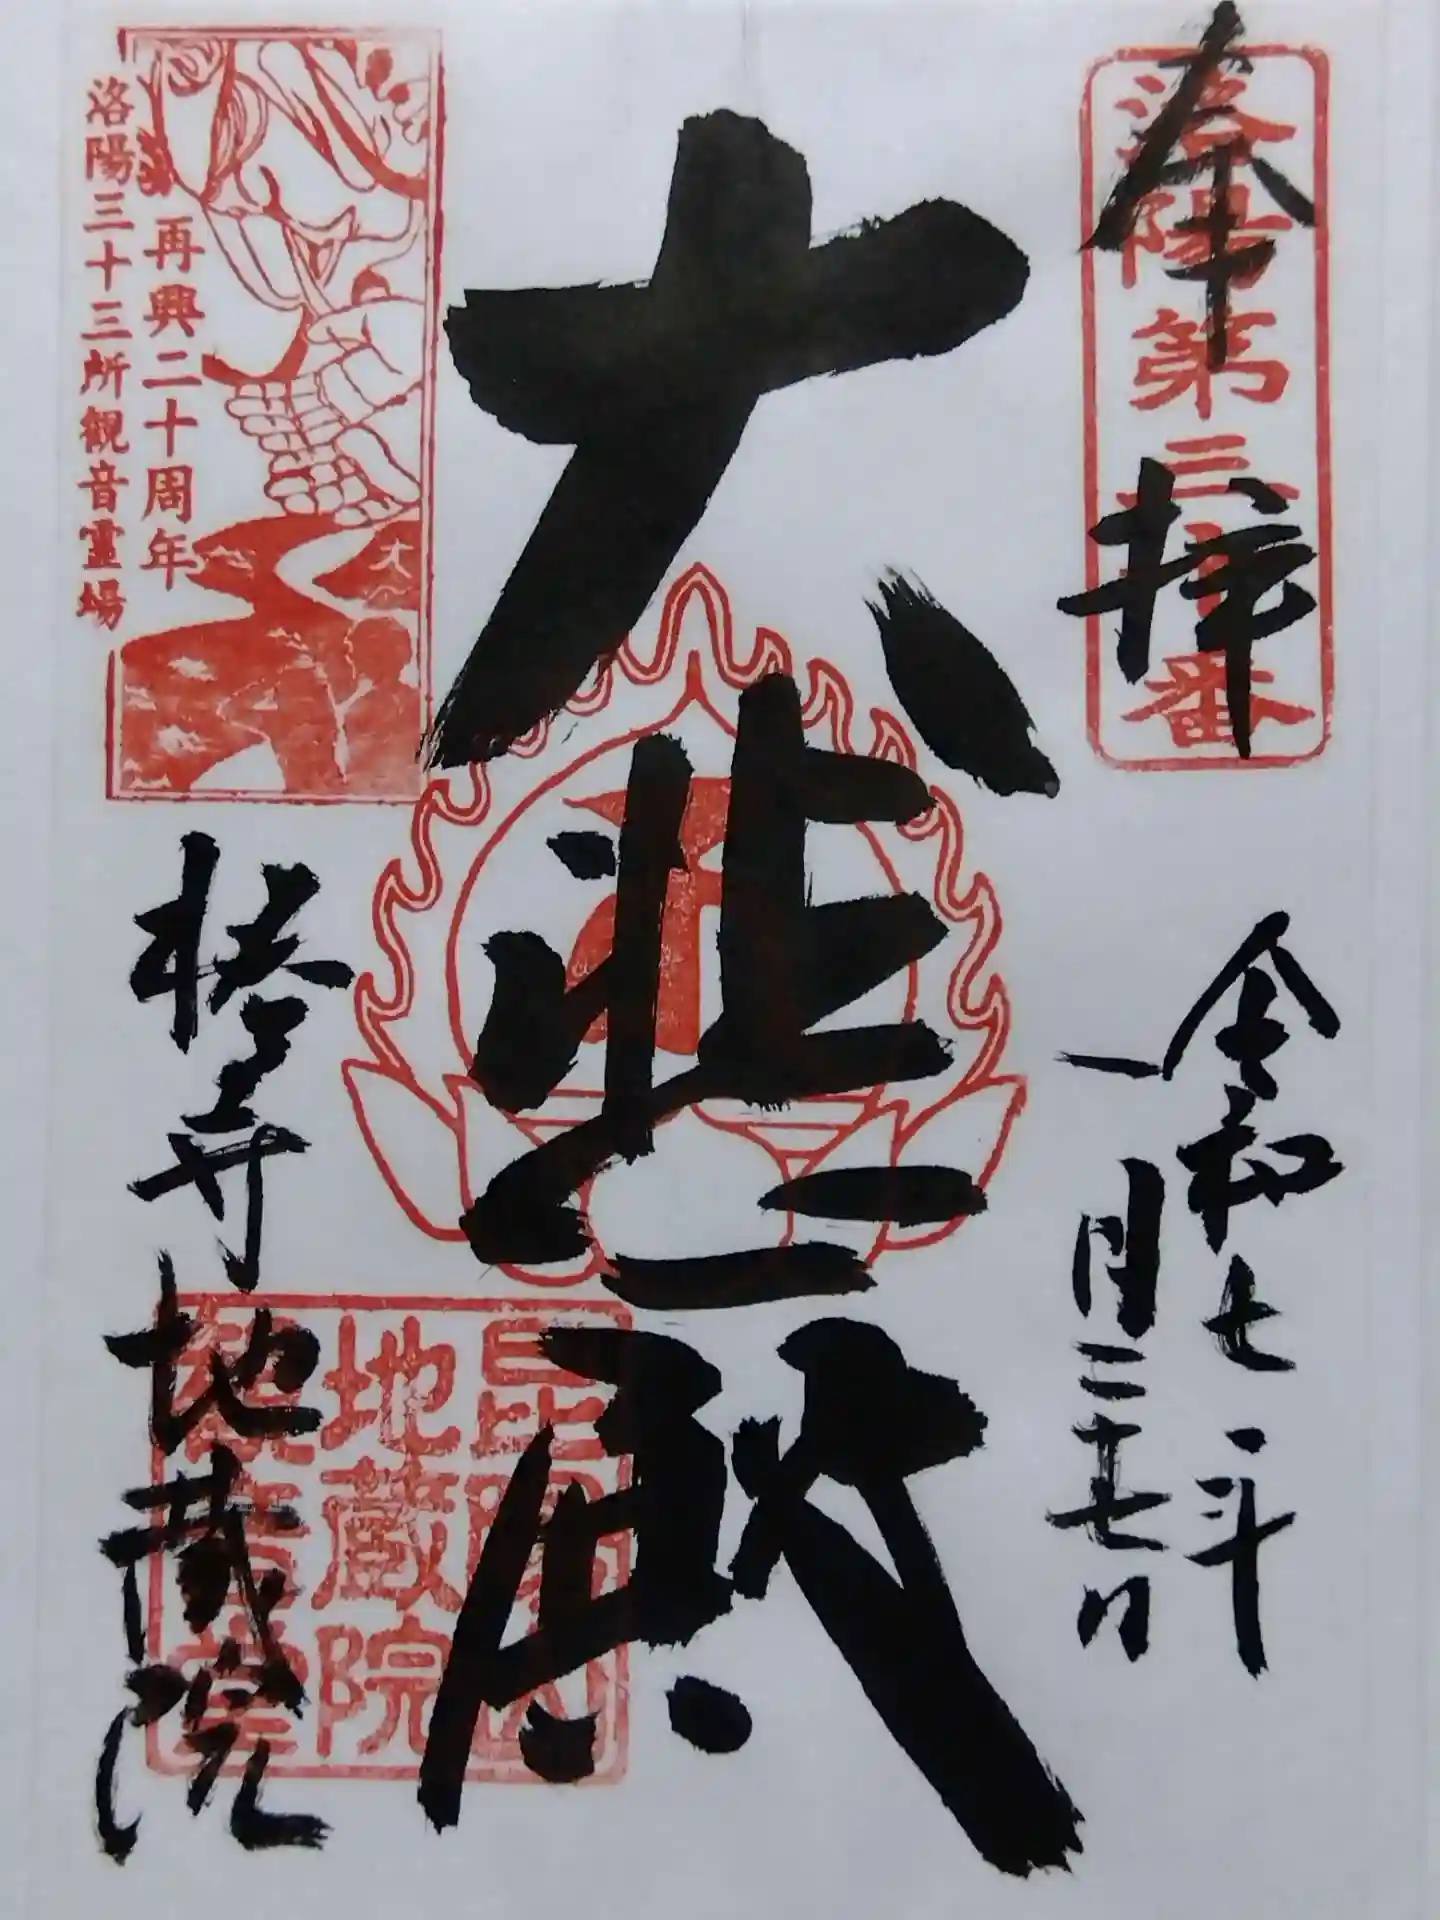 奉拝
洛陽第三十番
令和七年
一月二十七日
大悲殿
椿寺 地蔵院
昆陽山
地蔵院
観音堂
再興二十周年
洛陽三十三所観音霊場